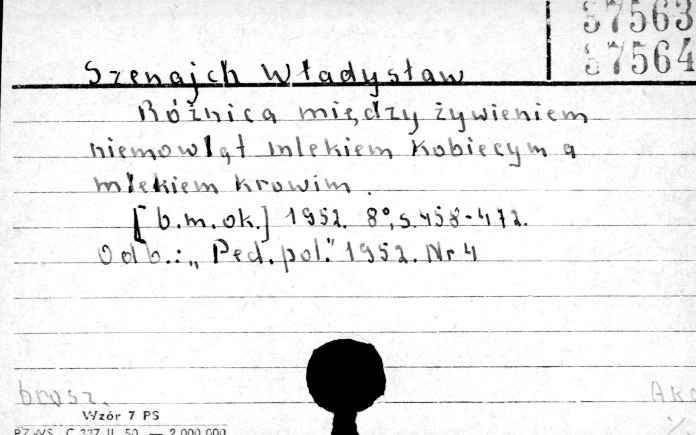 37563
37564
Szenajch Władysław
Różnica między żywieniem
niemowląt mlekiem kobiecym a
mlekiem krowim.
[b.m.ok.] 1952. 8°, s. 458-472.
Odb.: „Ped. pol." 1952. Nr 4
brosz.
Akc
Wzór 7 PS
PZWS. C 337 II. 50. — 2 000 000